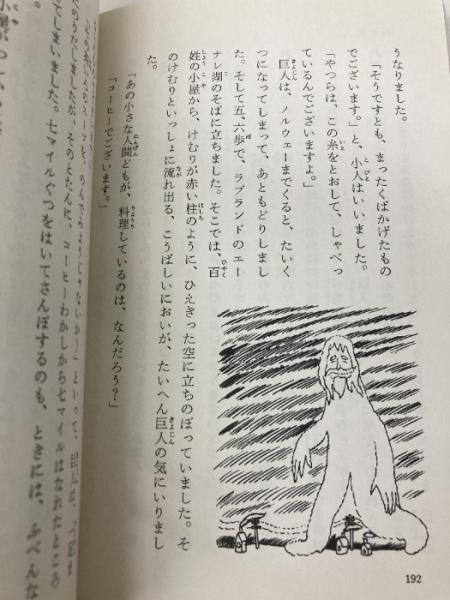 うなりました。
「そうですとも、まったくばかげたもの
でございます。」と、小人はいいました。
「やつらは、この糸をとおして、しゃべっ
ているんでございますよ。」
巨人は、ノルウェーまでくると、たいく
つになってしまって、あともどりしまし
た。そして五、六歩で、ラプランドのエー
ナレ湖のそばに立ちました。そこでは、百
姓の小屋から、けむりが赤い柱のように、ひえきった空に立ちのぼっていました。そ
のけむりといっしょに流れ出る、こうばしいにおいが、たいへん巨人の気にいりまし
た。
「あの小さな人間どもが、料理しているのは、なんだろう？」
「コーヒーでございます。」
といって、巨人は、
しましたが、そのとたんに、コーヒーわかしから七マイルはなれたところ
てしまいました。七マイルぐつをはいてさんぽするのも、ときには、ふべんな
192